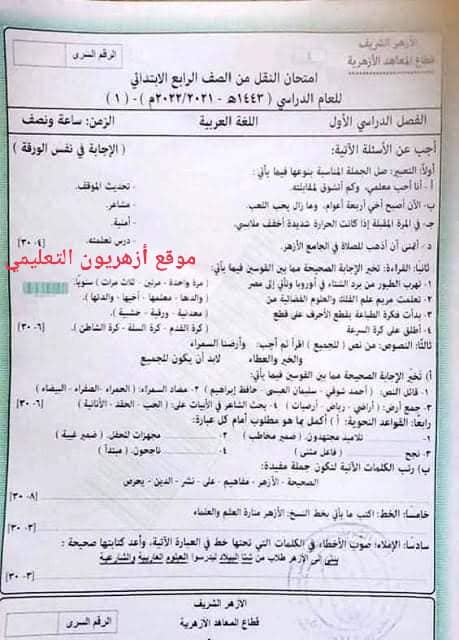 الأزهر الشريف
قطاع المعاهد الأزهرية
الرقم السرى
امتحان النقل من الصف الرابع الابتدائي
للعام الدراسي ( ١٤٤٣هـ - ٢٠٢٢/٢٠٢١م ) - ( ١ )
الفصل الدراسي الأول
اللغة العربية
الزمن: ساعة ونصف
أجب عن الأسئلة الآتية:
( الإجابة في نفس الورقة )
أولاً: التعبير: صل الجملة المناسبة بنوعها فيما يأتي:
أ - أنا أحب معلمي، وكم أتشوق لمقابلته. - تحديث الموقف.
ب- الآن أصبح أخي أربعة أعوام، وما زال يحب اللعب. - مشاعر.
ج- في المرة المقبلة إذا كانت الحرارة شديدة أخفف ملابسي. - أمنية.
د - أتمنى أن أذهب للصلاة في الجامع الأزهر. - درس تعلمته. [٣٠ : ٤]
موقع أزهريون التعليمي
ثانيًا: القراءة: تخير الإجابة الصحيحة مما بين القوسين فيما يأتي:
١- تهرب الطيور من برد الشتاء في أوروبا وتأتي إلى مصر ( مرة واحدة - مرتين - ثلاث مرات ) سنويًا.
٢- تعلمت مريم علم الفلك والعلوم الفضائية من ( والدها - معلمها - أخيها - والدتها ).
٣- بدأت فكرة الطباعة بقطع الأحرف على قطع ( معدنية - ورقية - خشبية ).
٤- أطلق على كرة السرعة ( كرة القدم - كرة السلة - كرة الشاطئ ). [٣٠ : ٦]
ثالثًا: النصوص: من نص ( للجميع ) اقرأ ثم أجب: وأرضنا السمراء
والخير والعطاء لابد أن يكون للجميع
( أ ) تخير الإجابة الصحيحة مما بين القوسين فيما يأتي:
١- قائل النص: ( أحمد شوقي - سليمان العيسى - حافظ إبراهيم ) ٢- مضاد السمراء: ( الحمراء - الصفراء - البيضاء )
٣- جمع أرض: ( أراضي - رياض - أرضيات ) ٤- يحث الشاعر في الأبيات على: ( الحب - الحقد - الأنانية ) [٣٠ : ٦]
رابعًا: القواعد النحوية: ( أ ) أكمل بما هو مطلوب أمام كل عبارة:
١- تلاميذ مجتهدون. ( ضمير مخاطب ) ٢- مجهزات للحفل. ( ضمير غيبة )
٣- نجح ( فاعل مثنى ) ٤- ناجحون. ( مبتدأ )
ب ) رتب الكلمات الآتية لتكون جملة مفيدة:
الصحيحة - الأزهر - مفاهيم - على - نشر - الدين - يحرص
[٣٠ : ٨]
خامسًا: الخط: اكتب ما يأتي بخط النسخ: الأزهر منارة العلم والعلماء
[٣٠ : ٣]
سادسًا: الإملاء: صوب الأخطاء في الكلمات التي تحتها خط في العبارة الآتية، وأعد كتابتها صحيحة :
يئتى إلى الأزهر طلاب من شتا البيلاد ليدرسوا العلوم العاربية والشارعية
[٣٠ : ٣]
الأزهر الشريف
قطاع المعاهد الأزهرية
الرقم السرى